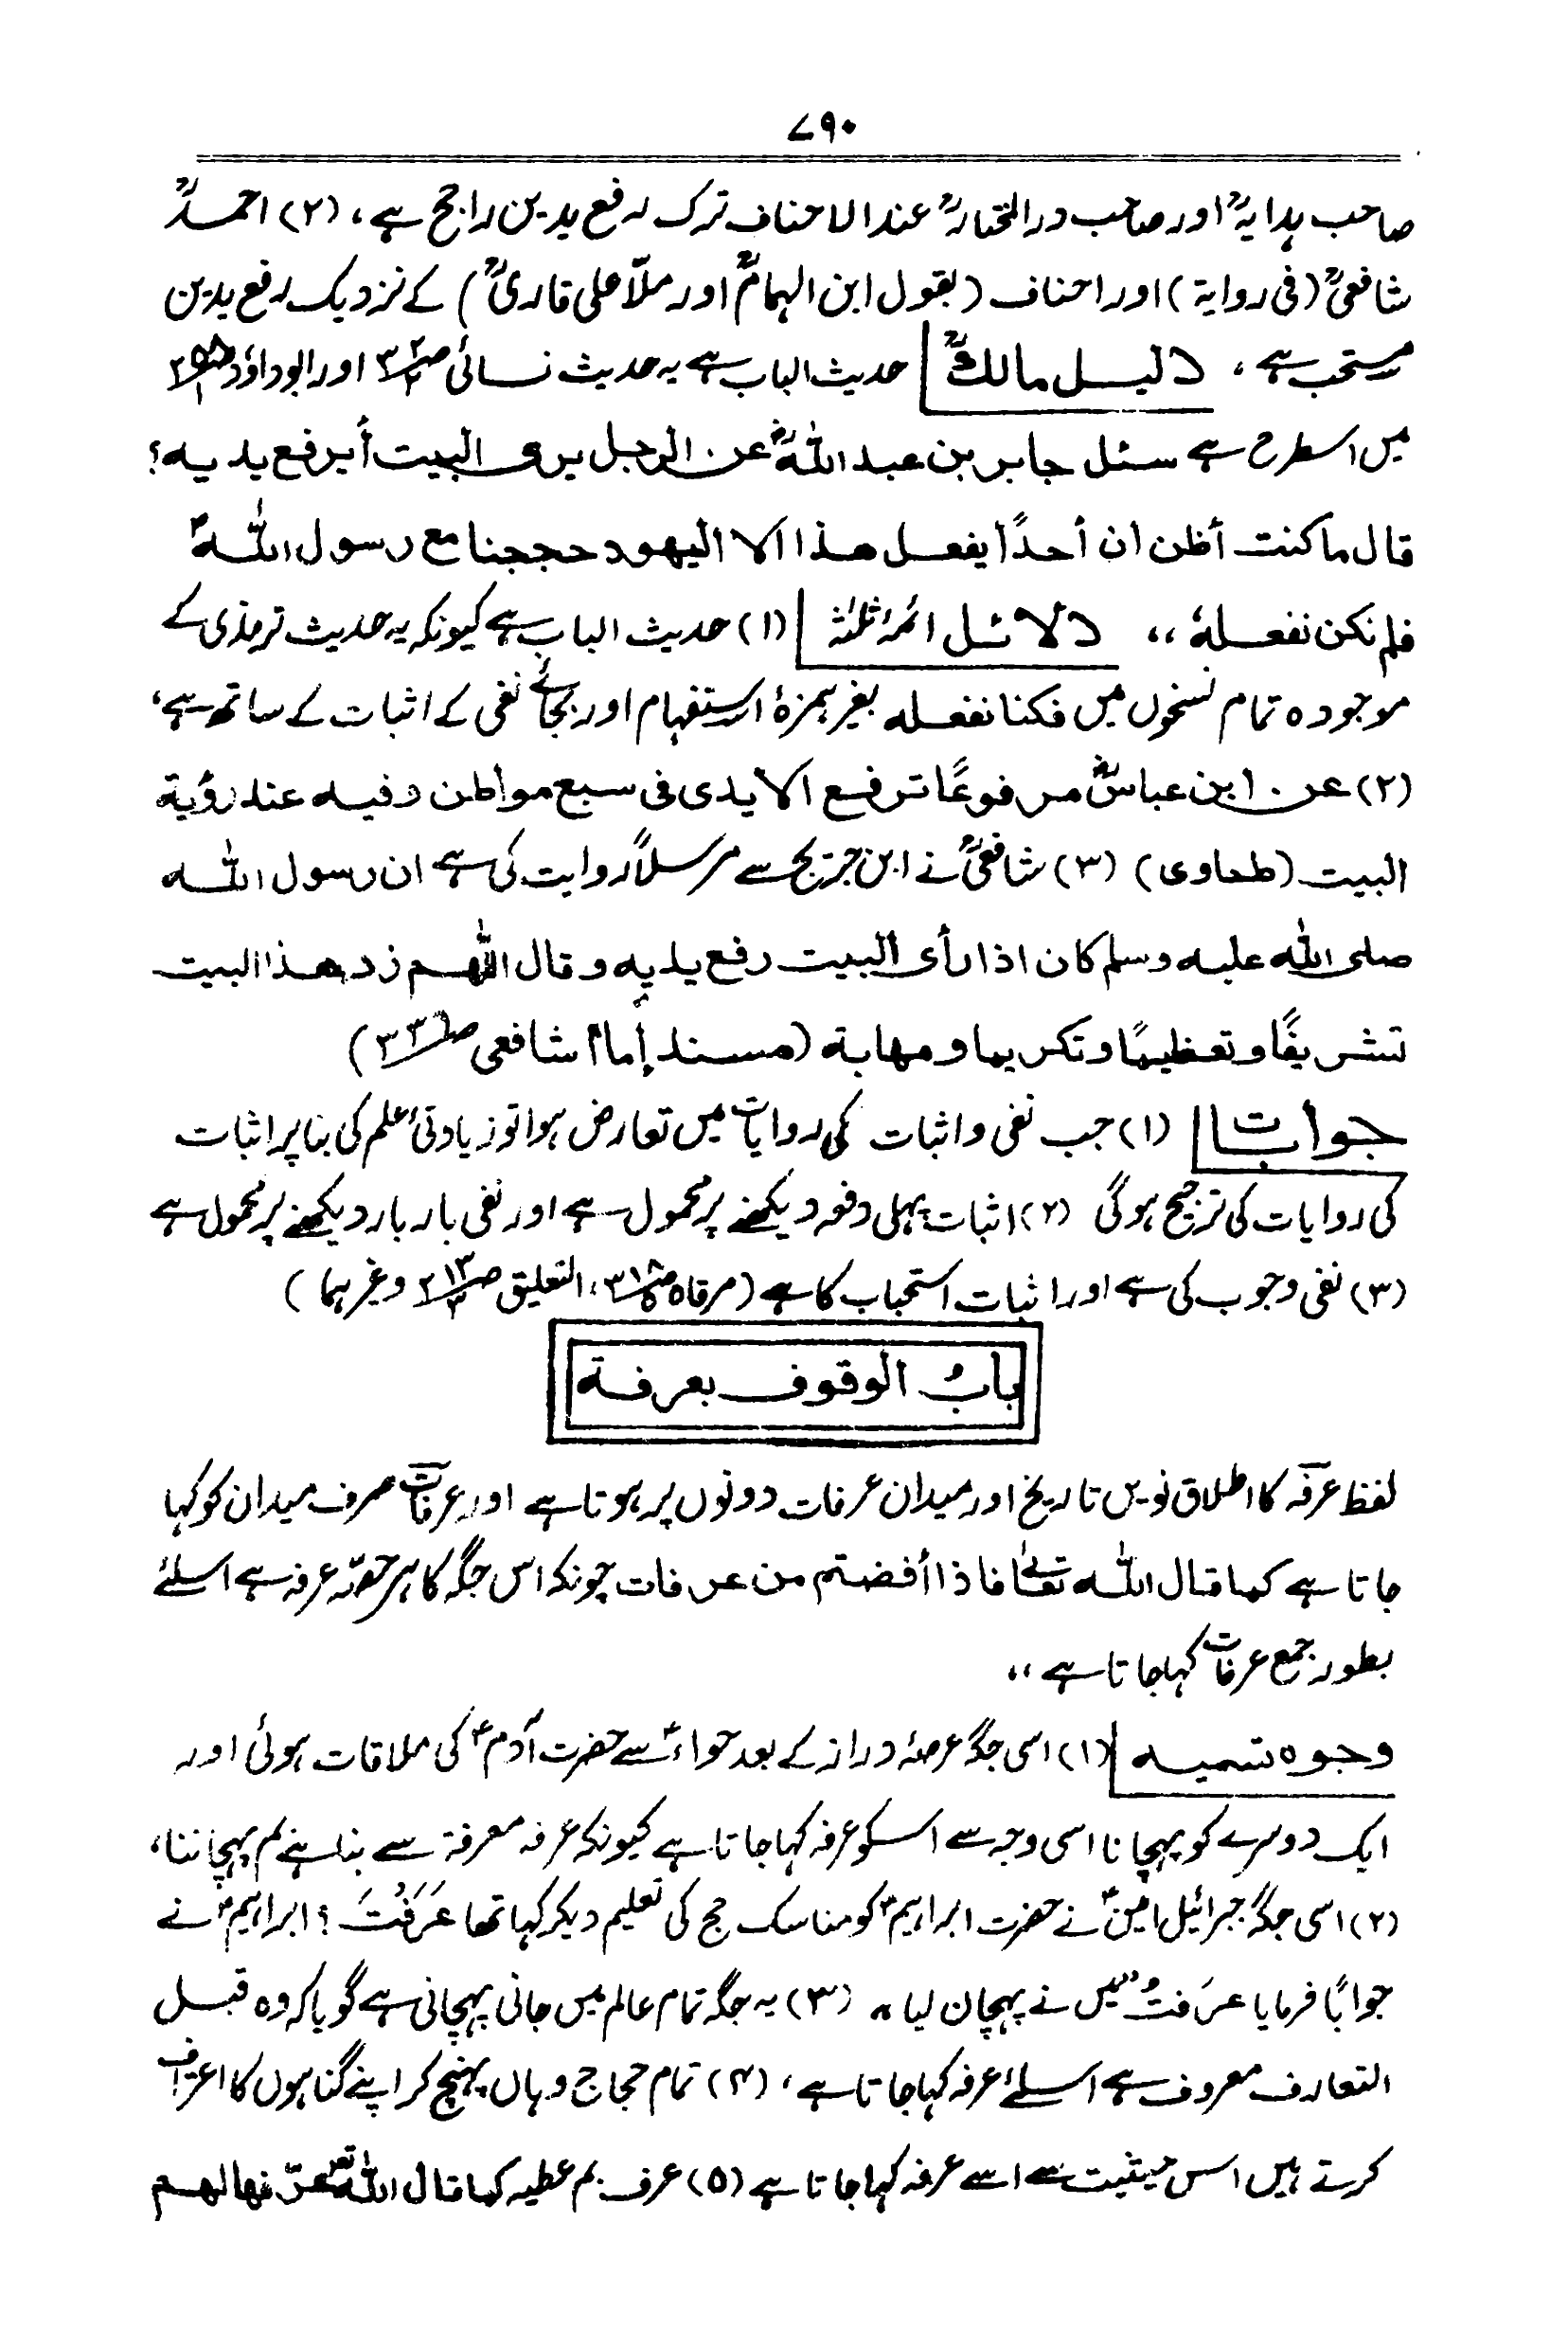 ۷۹۰
صاحب ہدایہؒ اور صاحب در المختارؒ عند الاحناف ترک رفع یدین راجح ہے، (۲) احمدؒ
شافعیؒ (فی روایۃ) اور احناف (بقول ابن الہمامؒ اور ملّا علی قاریؒ) کے نزدیک رفع یدین
مستحب ہے، دلیل مالکؒ حدیث الباب ہے یہ حدیث نسائی اور ابوداؤد
میں اسطرح ہے سئل جابر بن عبد اللہؓ عن الرجل یری البیت أیرفع یدیہ؟
قال ما کنت أظن ان أحدًا یفعل ھذا الا الیھود حججنا مع رسول اللہؐ
فلم نکن نفعلہٗ ،، دلائل ائمۂ ثلٰثہ (۱) حدیث الباب ہے کیونکہ یہ حدیث ترمذی کے
موجودہ تمام نسخوں میں فکنا نفعلہ بغیر ہمزۂ استفہام اور بجائے نفی کے اثبات کے ساتھ ہے،
(۲) عن ابن عباسؓ مرفوعًا ترفع الایدی فی سبع مواطن وفیہ عند رؤیۃ
البیت (طحاوی) (۳) شافعیؒ نے ابن جریج سے مرسلاً روایت کی ہے ان رسول اللہ
صلی اللہ علیہ وسلم کان اذا رأی البیت رفع یدیہ وقال اللّٰھم زد ھذا البیت
تشریفًا وتعظیمًا وتکریما ومھابۃ (مسند إمام شافعی)
جوابات (۱) جب نفی واثبات کی روایات میں تعارض ہوا تو زیادتیٔ علم کی بنا پر اثبات
کی روایات کی ترجیح ہوگی (۲) اثبات پہلی دفعہ دیکھنے پر محمول ہے اور نفی بار بار دیکھنے پر محمول ہے
(۳) نفی وجوب کی ہے اور اثبات استحباب کا ہے (مرقاہ، التعلیق وغیرہما)
بابُ الوقوف بعرفۃ
لفظ عرفہ کا اطلاق نویں تاریخ اور میدان عرفات دونوں پر ہوتا ہے اور عرفات صرف میدان کو کہا
جاتا ہے کما قال اللہ تعالیٰ فاذا أفضتم من عرفات چونکہ اس جگہ کا ہر حصّہ عرفہ ہے اسلئے
بطور جمع عرفات کہا جاتا ہے ،،
وجوہ تسمیہ (۱) اسی جگہ عرصۂ دراز کے بعد حواءؑ سے حضرت آدمؑ کی ملاقات ہوئی اور
ایک دوسرے کو پہچانا اسی وجہ سے اسکو عرفہ کہا جاتا ہے کیونکہ عرفہ معرفۃ سے بنا ہے بم پہچاننا،
(۲) اسی جگہ جبرائیل امینؑ نے حضرت ابراہیمؑ کو مناسک حج کی تعلیم دیکر کہا تھا عَرَفْتَ ؟ ابراہیمؑ نے
جوابًا فرمایا عَرَفتُ میں نے پہچان لیا ،، (۳) یہ جگہ تمام عالم میں جانی پہچانی ہے گویا کہ وہ قبل
التعارف معروف ہے اسلئے عرفہ کہا جاتا ہے، (۴) تمام حجاج وہاں پہنچ کر اپنے گناہوں کا اعتراف
کرتے ہیں اس حیثیت سے اسے عرفہ کہا جاتا ہے (۵) عرف بم عطیہ کما قال اللہ تعؑ عرّفھا لھم